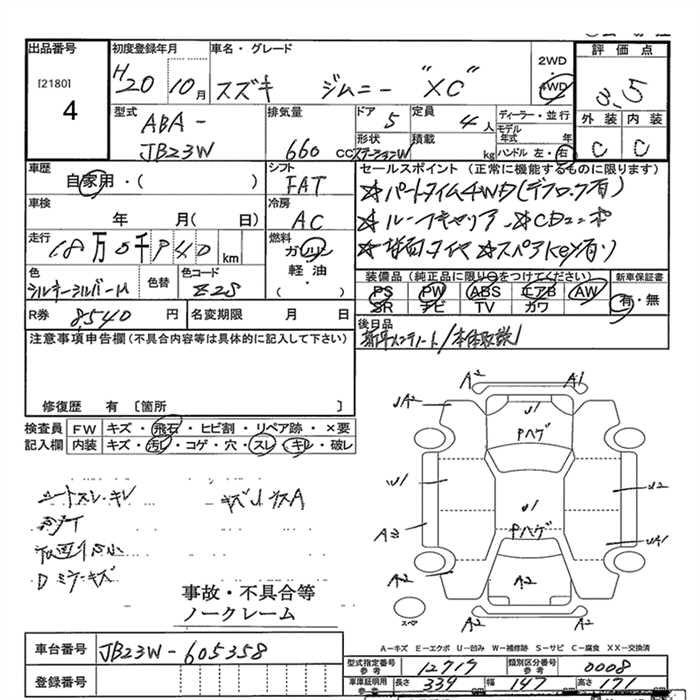 出品番号
[2180]
4
初度登録年月
H20 10月
車名・グレード
スズキ ジムニー "XC"
2WD
・
4WD
評価点
3.5
型式
ABA-
JB23W
排気量
660 cc
ドア
5
定員
4人
形状
ステーションW
積載
kg
ディーラー・並行
モデル
年式
年
ハンドル 左・右
外装
C
内装
C
車歴
自家用・( )
シフト
FAT
セールスポイント (正常に機能するものに限ります)
☆パートタイム4WD(デフロック有)
☆ルーフキャリア ☆CDコンポ
☆スペアkey有り
車検
年 月( 日)
冷房
AC
走行
km
燃料
ガソリン
軽油
( )
装備品 (純正品に限り○をつけてください)
PS PW ABS エアB AW
SR ナビ TV カワ
新車保証書
有・無
色
シルキーシルバーM
色替
色コード
Z2S
R券
8,540 円
名変期限
月 日
後日品
注意事項申告欄(不具合内容等は具体的に記入して下さい)
修復歴 有 〔箇所 〕
検査員
記入欄
FW
キズ・飛石・ヒビ割・リペア跡・×要
内装
キズ・汚レ・コゲ・穴・スレ・キレ・破レ
シートスレ・キレ
A2 A1
UA2 U1
Pハゲ
U1 U1 U2
Pハゲ
A3 UA1
A2 A2 A2
A2 A2
スペア
事故・不具合等
ノークレーム
A-キズ E-エクボ U-凹み W-補修跡 S-サビ C-腐食 XX-交換済
車台番号
JB23W-605358
登録番号
型式指定番号
参考
12717
類別区分番号
参考
0008
車庫証明用
参考
長さ 339
幅 147
高さ 171